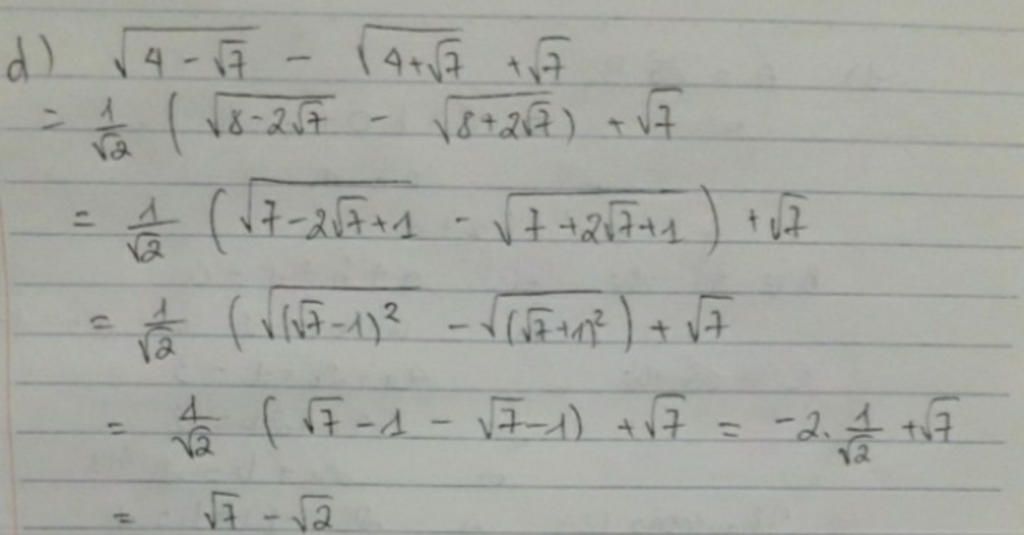 d) √(4 - √7) - √(4+√7) + √7
= 1/√2 ( √(8-2√7) - √(8+2√7) ) + √7
= 1/√2 ( √(7-2√7+1) - √(7+2√7+1) ) + √7
= 1/√2 ( √((√7-1)²) - √((√7+1)²) ) + √7
= 1/√2 ( √7 - 1 - √7 - 1) + √7 = -2. 1/√2 + √7
= √7 - √2